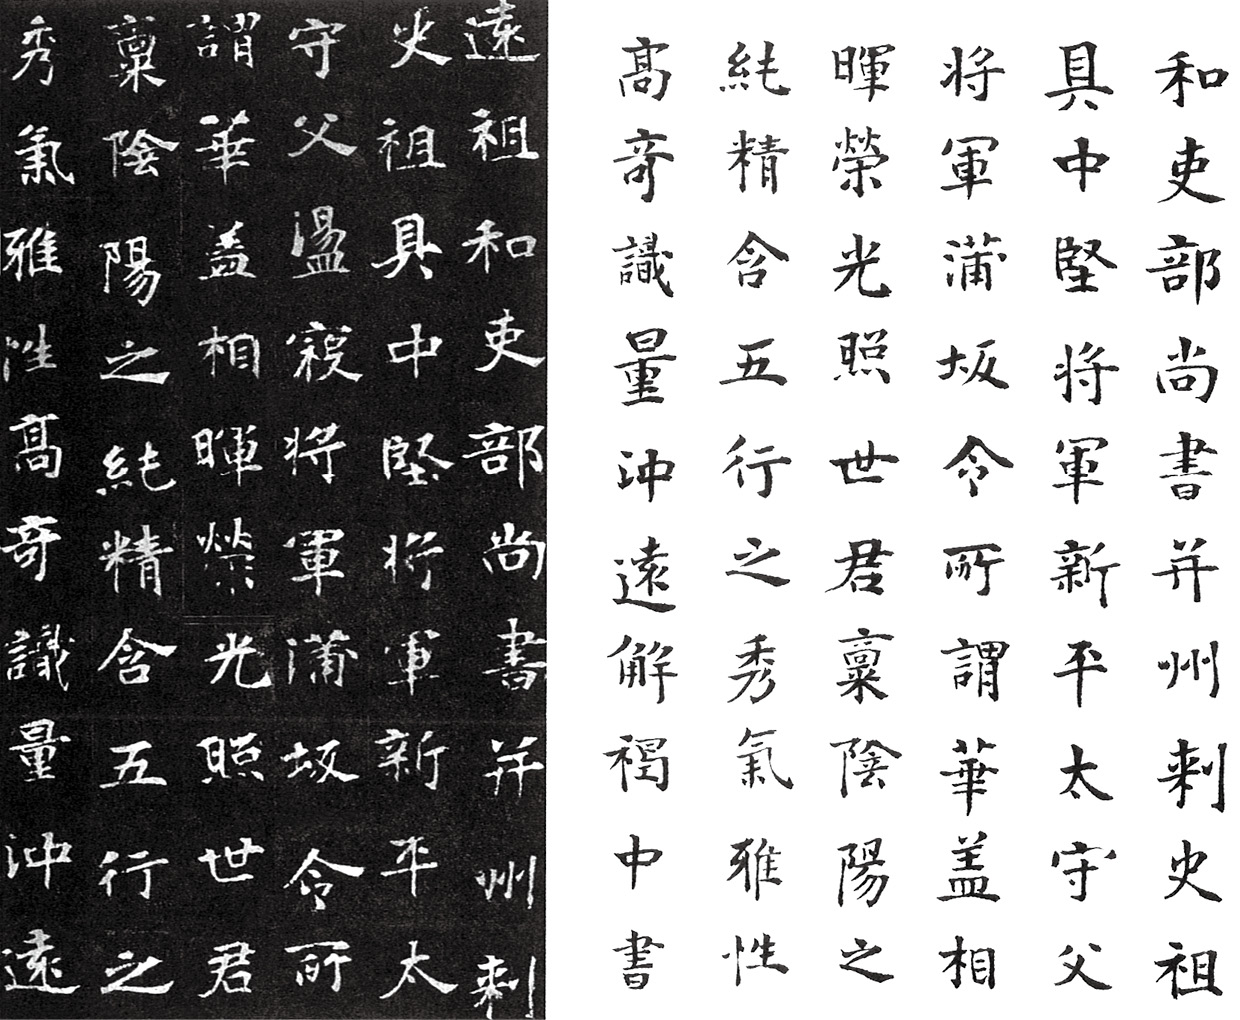 遠祖和吏部尚書并州刺
史祖具中堅将軍新平太
守父盪寇将軍蒲坂令所
謂華盖相暉榮光照世君
稟陰陽之純精含五行之
秀氣雅性髙竒識量沖遠
和吏部尚書并州刺史祖
具中堅将軍新平太守父
将軍蒲坂令所謂華盖相
暉榮光照世君稟陰陽之
純精含五行之秀氣雅性
髙竒識量沖遠解褐中書